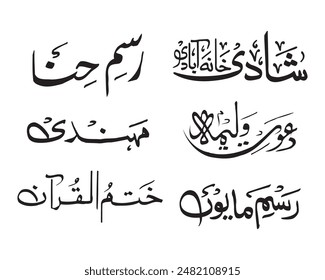 شادی خانہ آبادی
رسمِ حِنا
دعوتِ ولیمہ
مہندی
رسمِ مایوں
ختمُ القُرآن
shutterstock.com · 2482108915